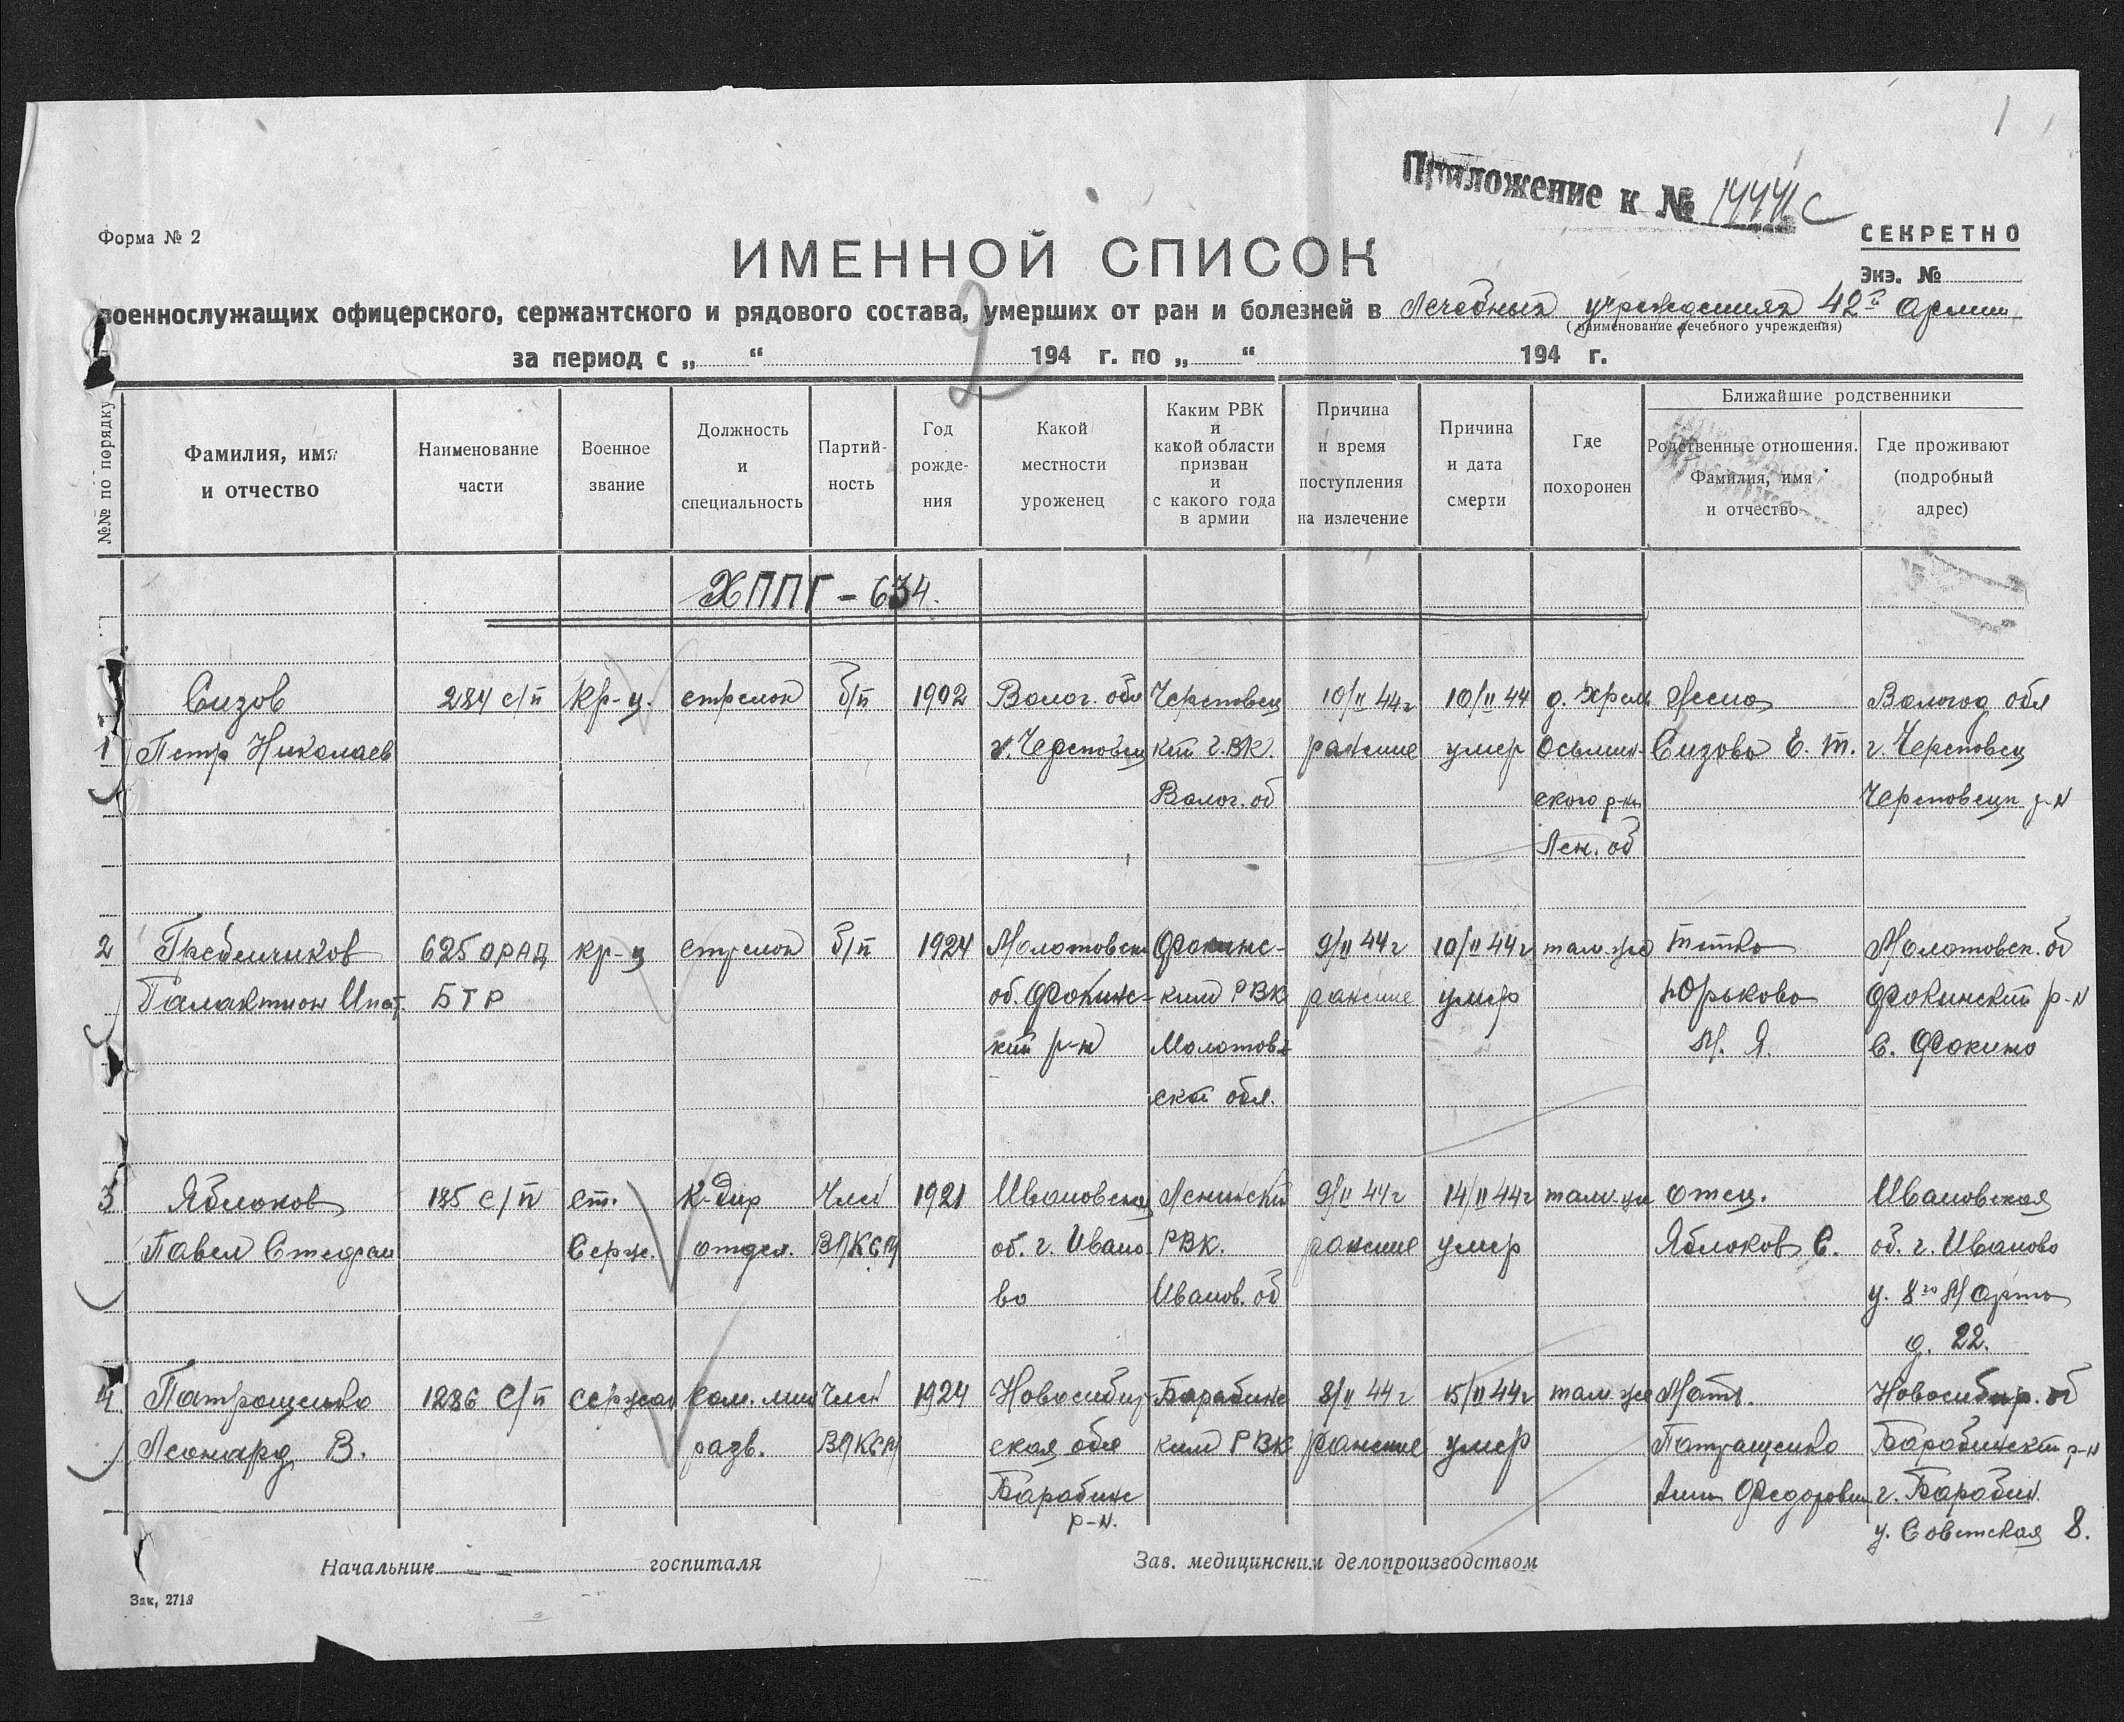 1
Приложение к № 1444с
Форма № 2
СЕКРЕТНО
ИМЕННОЙ СПИСОК
Экз. №
военнослужащих офицерского, сержантского и рядового состава, умерших от ран и болезней в Лечебных учреждениях 42й Армии
(наименование лечебного учреждения)
2
за период с „ “ 194 г. по „ “ 194 г.
№№ по порядку
Фамилия, имя и отчество
Наименование части
Военное звание
Должность и специальность
Партийность
Год рождения
Какой местности уроженец
Каким РВК и какой области призван и с какого года в армии
Причина и время поступления на излечение
Причина и дата смерти
Где похоронен
Ближайшие родственники
Родственные отношения. Фамилия, имя и отчество
Где проживают (подробный адрес)
ХППГ - 634.
Сизов 284 с/п кр-ц. стрелок б/п 1902 Волог. обл Череповец 10/II 44г 10/II 44 д. Жена Вологод обл
1 Петр Николаев г. Череповец кий г.ВК. ранение умер Осьмин- Сизова Е. т. г. Череповец
Волог. об ского р-на Череповецк р-н
Лен. об
2 Гребенчиков 625 ОРАД кр-ц стрелок б/п 1924 Молотовск Фокинс- 9/II 44г 10/II 44г там-же тетка Молотовск. об
Галактион Ипат. БТР об. Фокинс- ким РВК ранение умер Юрькова Фокинский р-н
кий р-н Молотов- М. Я. с. Фокино
ской обл.
3 Яблоков 185 с/п ст. К-дир Член 1921 Ивановская Ленинский 9/II 44г 14/II 44г там-же отец. Ивановская
Павел Стефан Серж. отдел. ВЛКСМ об. г. Ивано РВК. ранение умер Яблоков С. об. г. Иваново
во Иванов. об у. 8го Марта
д. 22.
4 Патращенко 1286 с/п сержан ком. мин Член 1924 Новосибир Барабинс 8/II 44г 15/II 44г там же Мать. Новосибир. об
Леонард В. разв. ВЛКСМ ская обл ким РВК ранение умер Патращенко Барабинский р-н
Барабинс Анна Федоровна г. Барабин.
р-н. у. Советская 8.
Начальник госпиталя
Зав. медицинским делопроизводством
Зак. 2718